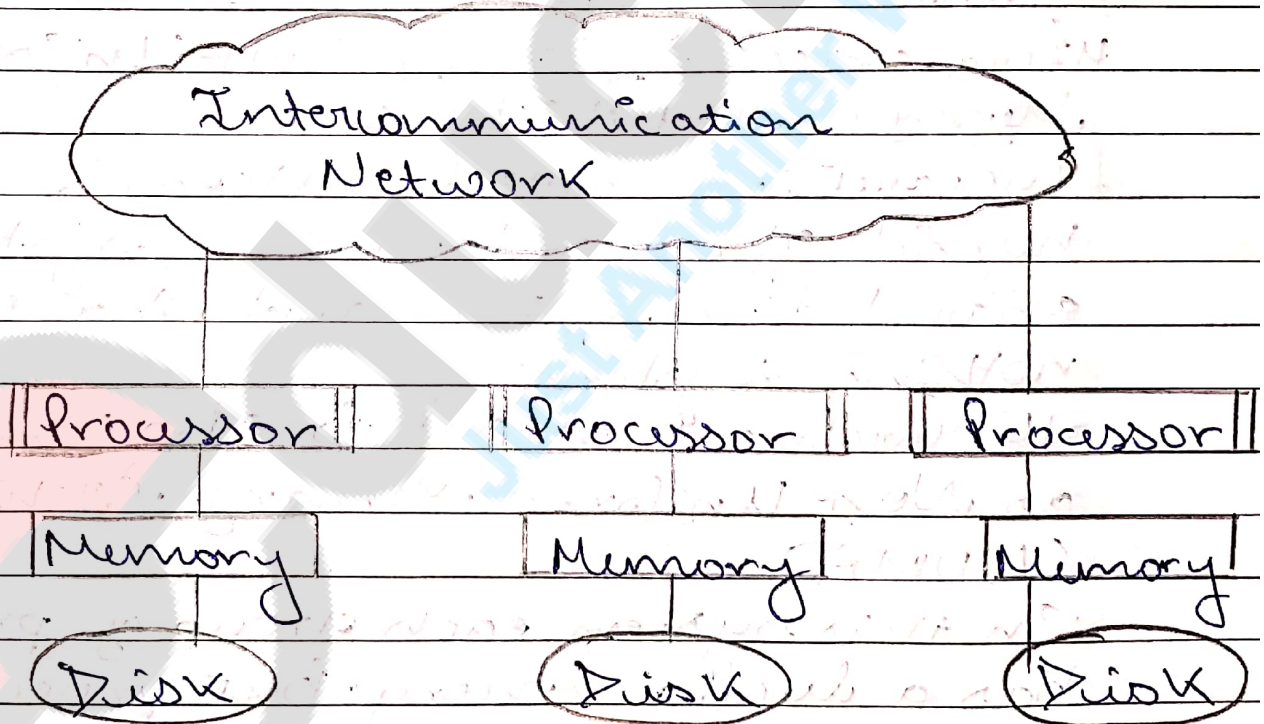 Intercommunication
Network
Processor Processor Processor
Memory Memory Memory
Disk Disk Disk
Just Another